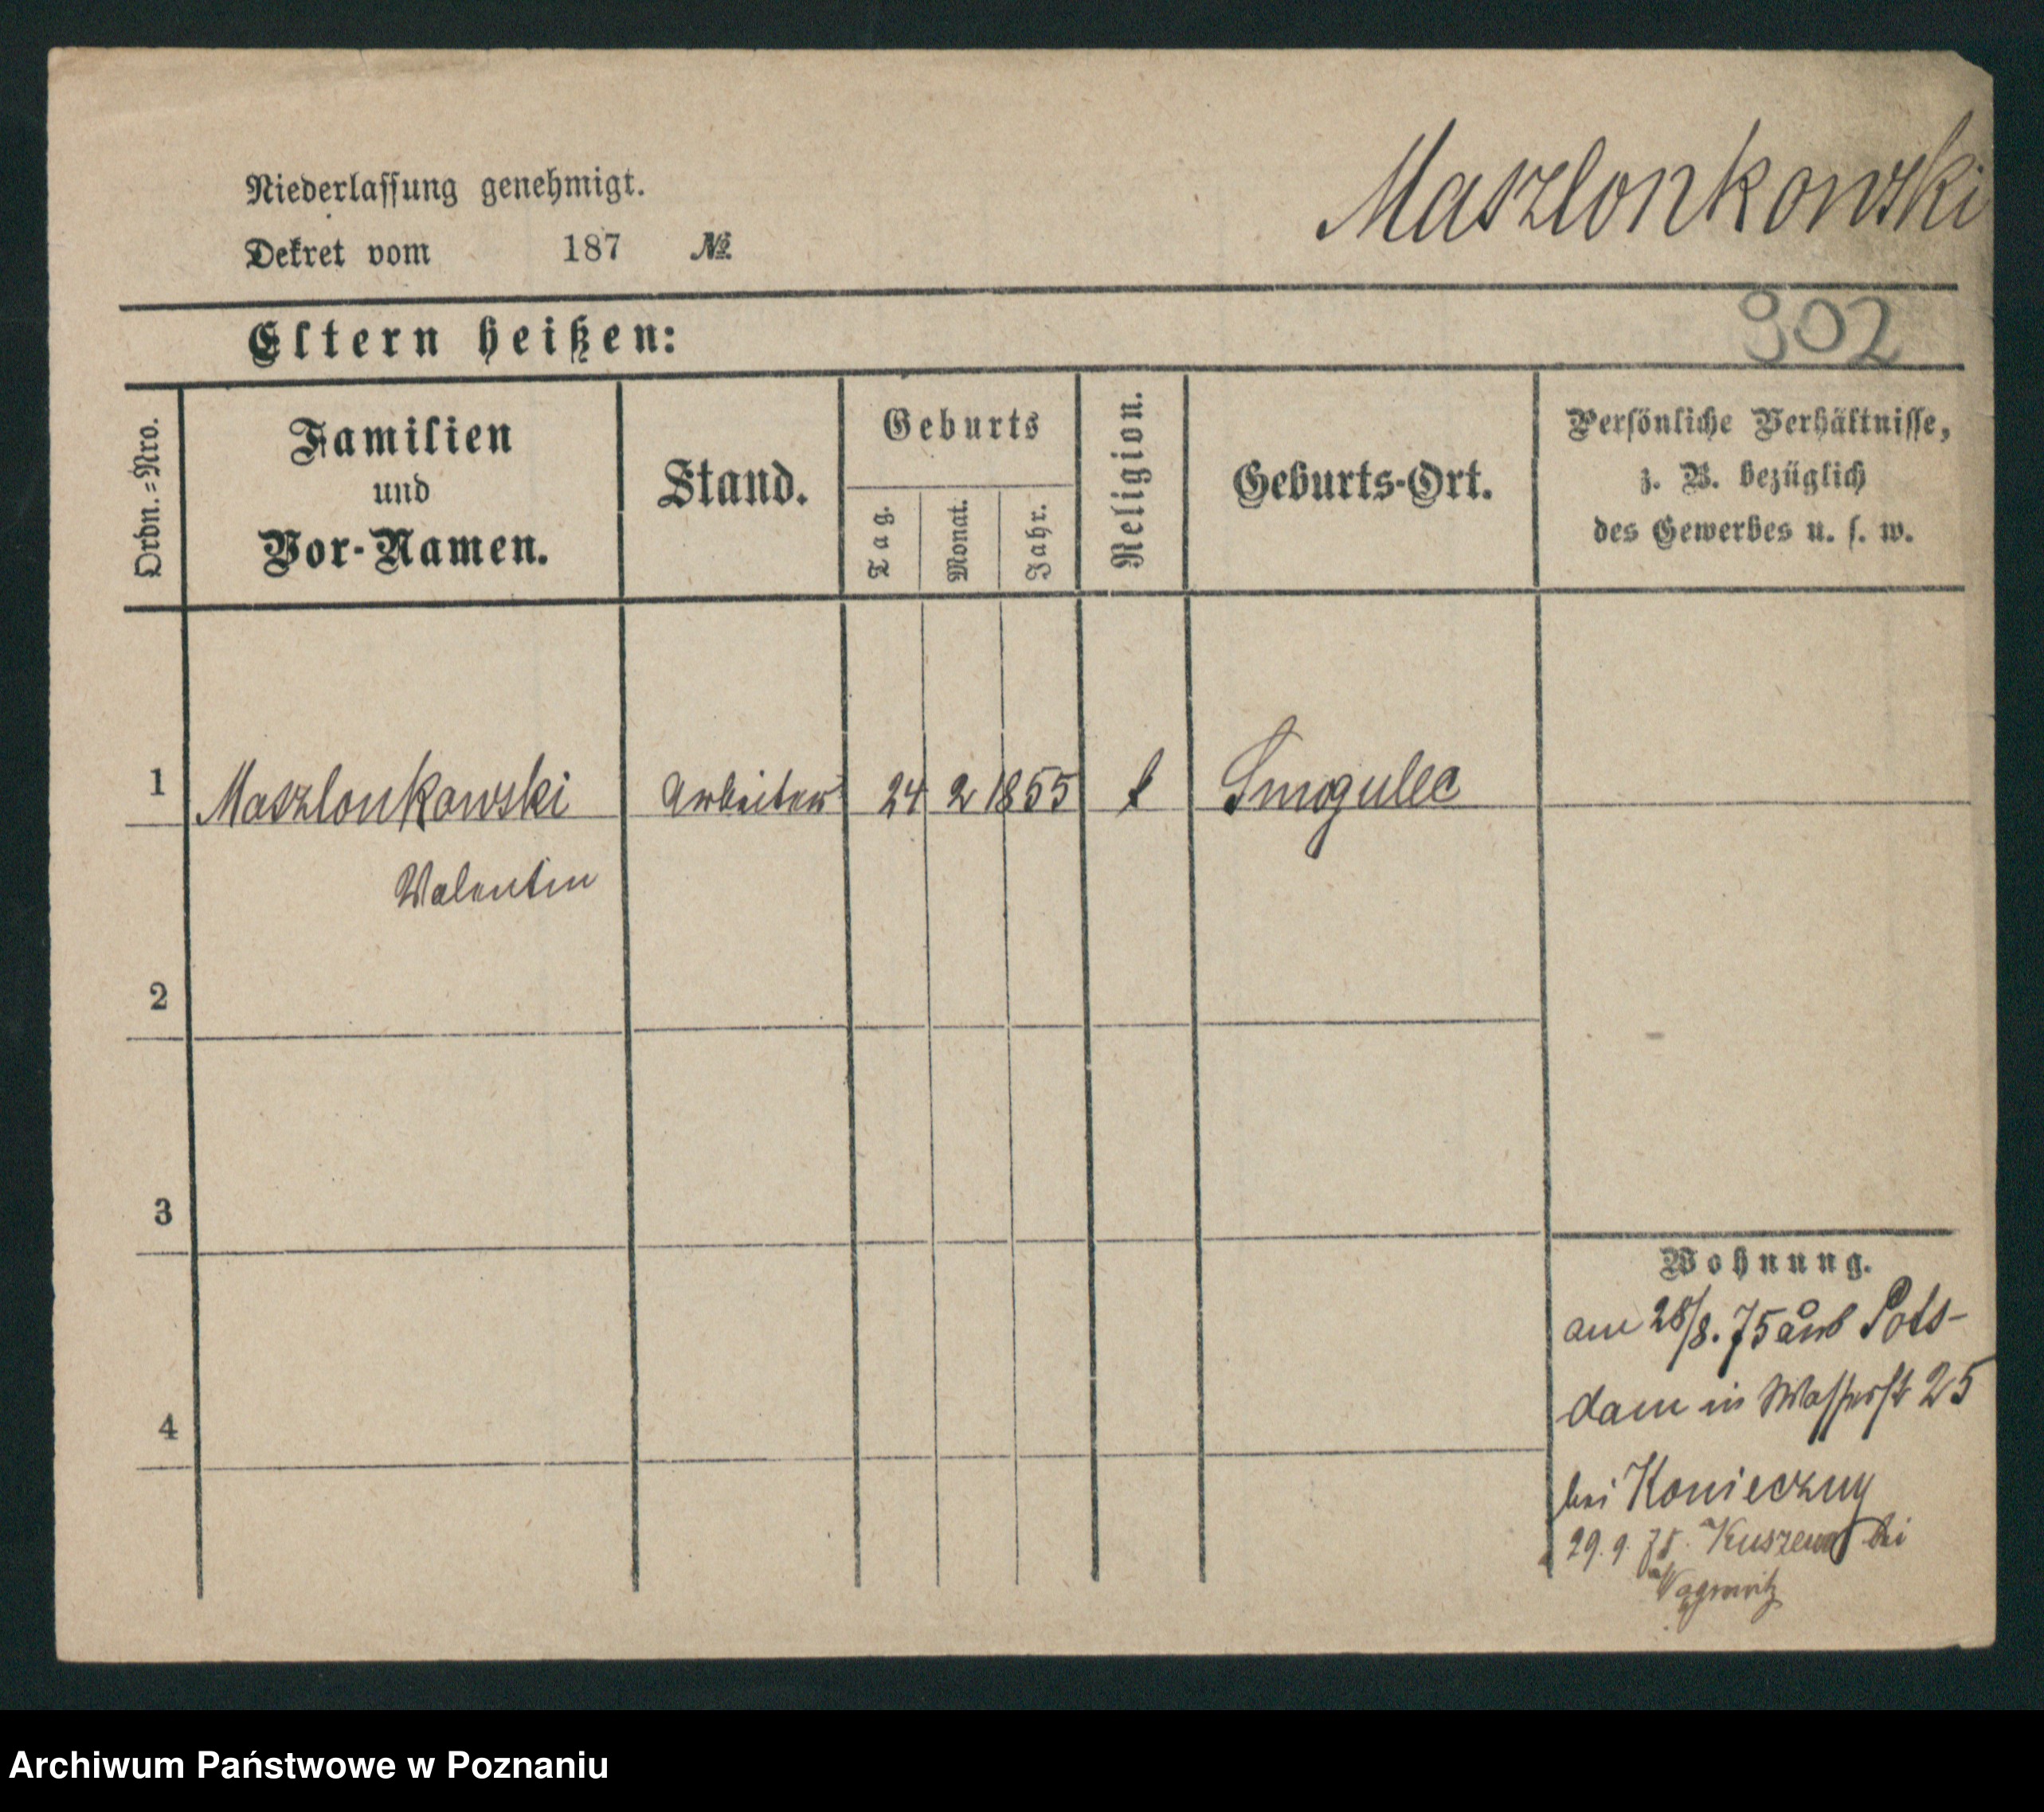 Niederlassung genehmigt.
Maszlonkowski
Dekret vom 187 №
Eltern heißen:
902
Ordn.=Nro.
Familien
und
Vor-Namen.
Stand.
Geburts
Tag.
Monat.
Jahr.
Religion.
Geburts-Ort.
Persönliche Verhältnisse,
z. B. bezüglich
des Gewerbes u. s. w.
1 Maszlonkowski Arbeiter 24 2 1855 k Smogulec
Valentin
2
3
4
Wohnung.
am 28/8. 75 aus Pots-
dam in Wasserstr 25
bei Konieczny
29. 9. 75. bei
Archiwum Państwowe w Poznaniu